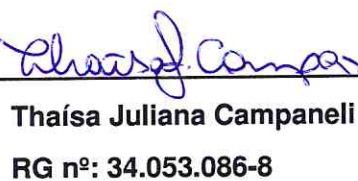 Thaísa J. Campan
Thaísa Juliana Campaneli
RG nº: 34.053.086-8